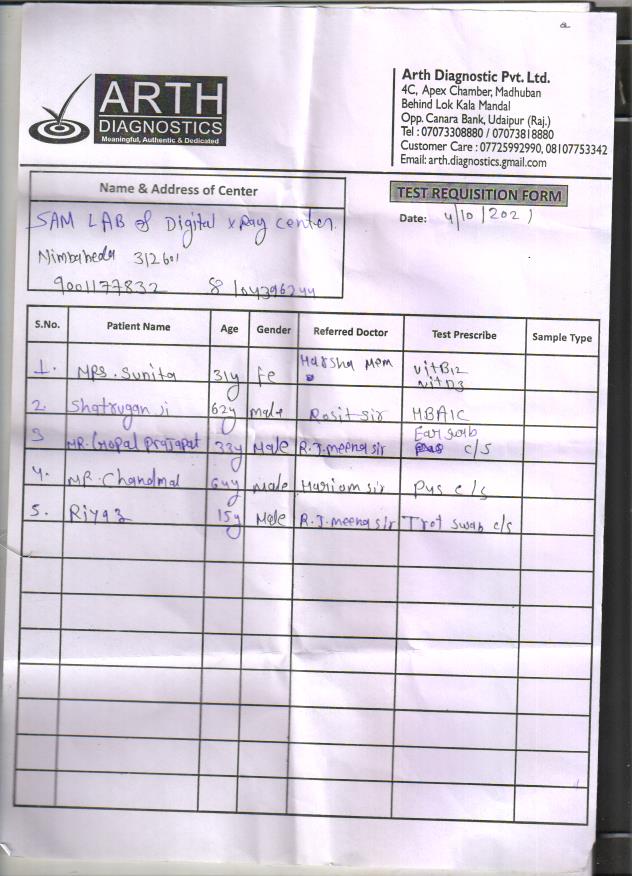 ARTH
DIAGNOSTICS
Meaningful, Authentic & Dedicated
Arth Diagnostic Pvt. Ltd.
4C, Apex Chamber, Madhuban
Behind Lok Kala Mandal
Opp. Canara Bank, Udaipur (Raj.)
Tel : 07073308880 / 07073818880
Customer Care : 07725992990, 08107753342
Email: arth.diagnostics.gmail.com
Name & Address of Center
SAM LAB of Digital x Ray center.
Nimbaheda 312601
9001177832
TEST REQUISITION FORM
Date: 4/10/2021
S.No. Patient Name Age Gender Referred Doctor Test Prescribe Sample Type
1. MRS. Sunita 31y Fe Harsha Mem VitB12
VitD3
2. Shatrugan Ji 62y male Rosit sir HBA1C
3 MR. Gopal Prajapat 33y Male R.J.meena sir Ear swab
c/s
4. MR. Chandmal 64y Male Hariom sir Pus c/s
5. Riyaz 15y Male R.J.meena sir Trot swab c/s